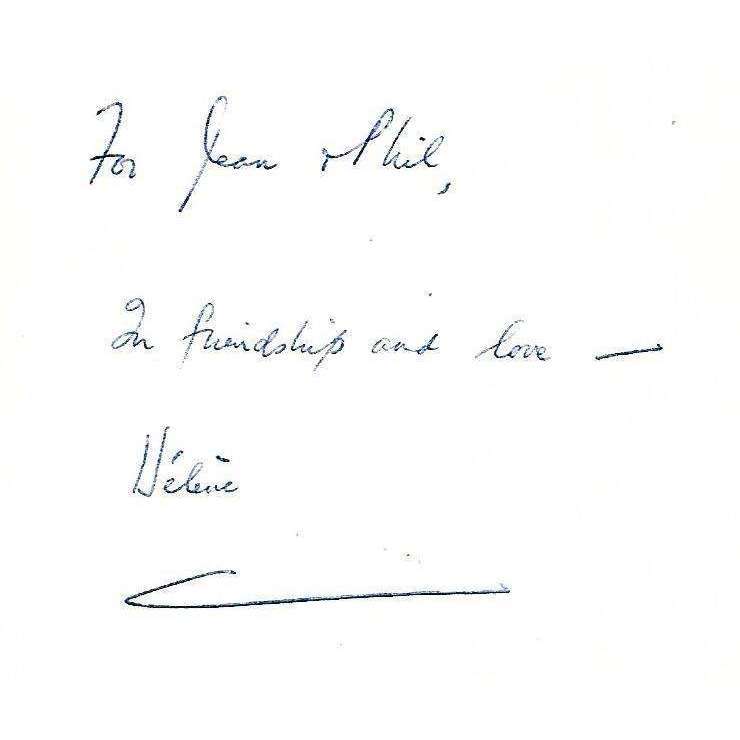 For Jean & Phil,
In friendship and love —
Hélène